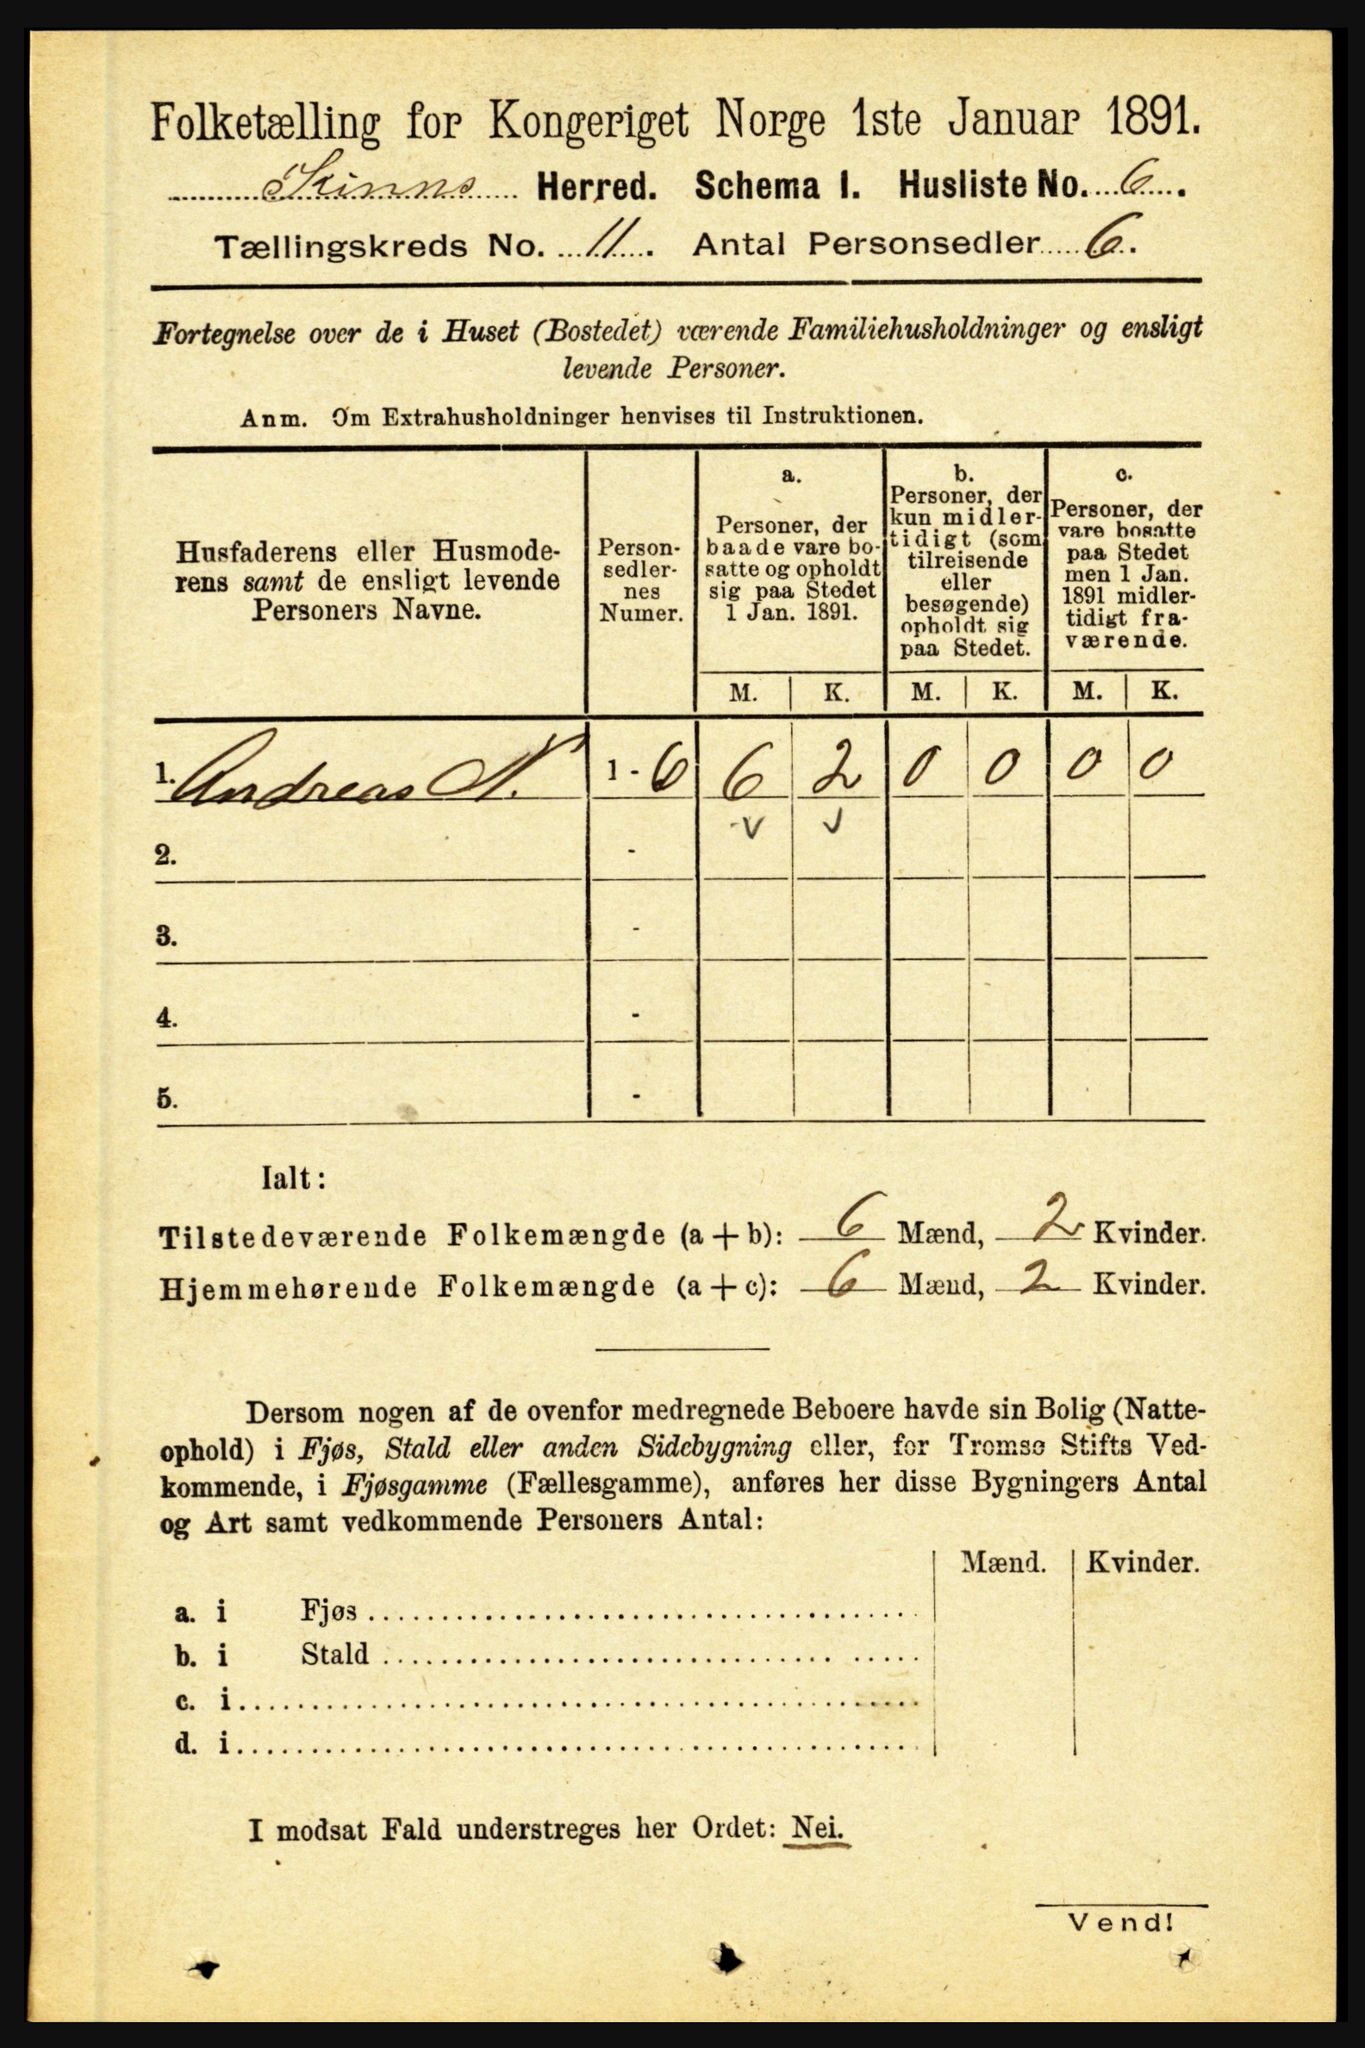 Folketælling for Kongeriget Norge 1ste Januar 1891.
Kinns Herred. Schema I. Husliste No. 6.
Tællingskreds No. 11. Antal Personsedler 6.
Fortegnelse over de i Huset (Bostedet) værende Familiehusholdninger og ensligt
levende Personer.
Anm. Om Extrahusholdninger henvises til Instruktionen.
Husfaderens eller Husmode-
rens samt de ensligt levende
Personers Navne.
Person-
sedler-
nes
Numer.
a.
Personer, der
baade vare bo-
satte og opholdt
sig paa Stedet
1 Jan. 1891.
b.
Personer, der
kun midler-
tidigt (som
tilreisende
eller
besøgende)
opholdt sig
paa Stedet.
c.
Personer, der
vare bosatte
paa Stedet
men 1 Jan.
1891 midler-
tidigt fra-
værende.
M. K. M. K. M. K.
1. Andreas N. 1 - 6 6 2 0 0 0 0
2. -
3. -
4. -
5. -
Ialt:
Tilstedeværende Folkemængde (a + b): 6 Mænd, 2 Kvinder.
Hjemmehørende Folkemængde (a + c): 6 Mænd, 2 Kvinder.
Dersom nogen af de ovenfor medregnede Beboere havde sin Bolig (Natte-
ophold) i Fjøs, Stald eller anden Sidebygning eller, for Tromsø Stifts Ved-
kommende, i Fjøsgamme (Fællesgamme), anføres her disse Bygningers Antal
og Art samt vedkommende Personers Antal:
Mænd. Kvinder.
a. i Fjøs
b. i Stald
c. i
d. i
I modsat Fald understreges her Ordet: Nei.
Vend!